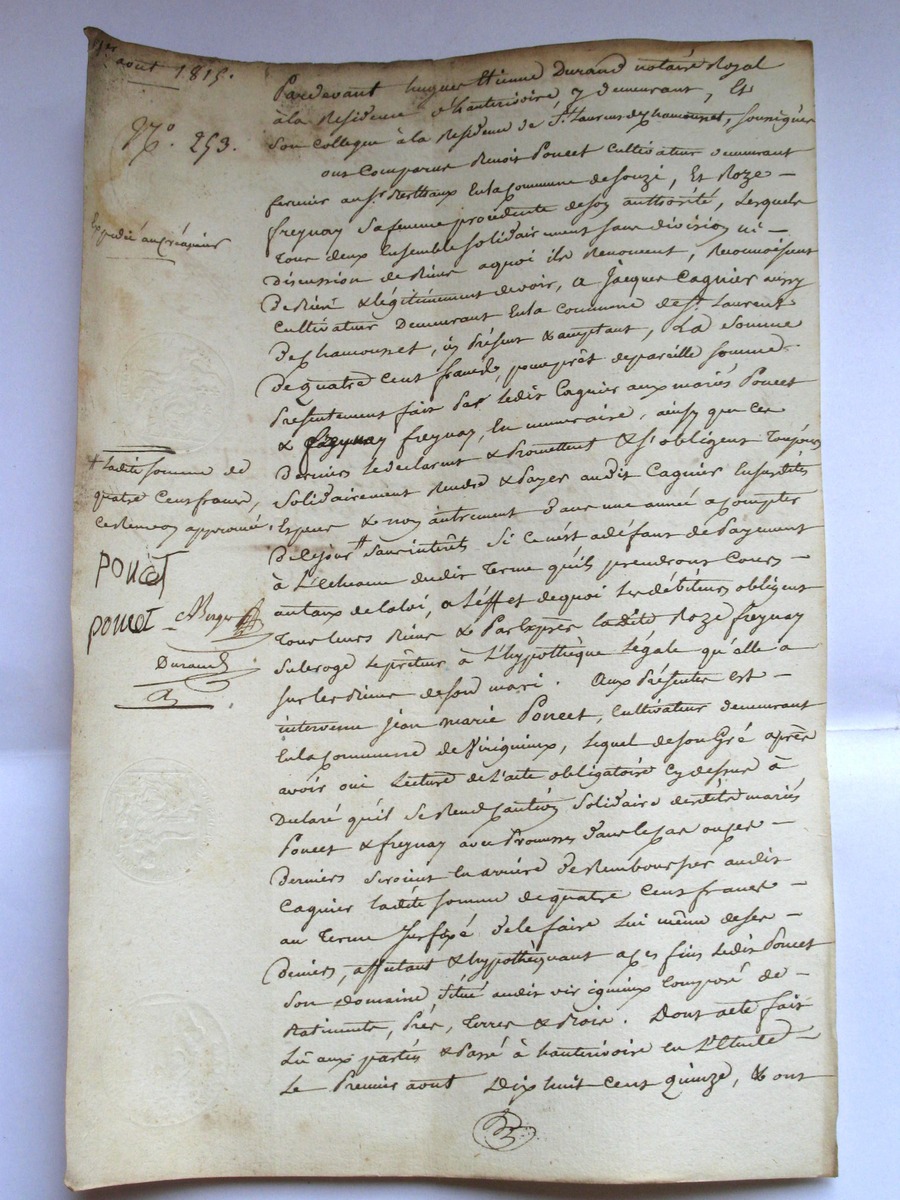 1er
août 1815.
N.° 253.
Expédié au créancier
+ ladite somme de
quatre Cens francs,
ce renvoy approuvé
poncet
poncet
Durand
Pardevant hugues Etienne Durand notaire Royal
à la Résidence d'hauterivoire y demeurant, Et
son Collegue à la Résidence de St. Laurens de Chamousset, soussignés
ont Comparus Benoit Poncet Cultivateur demeurant
fermier au Sr. Berthaux En la Commune de souzi, Et Roze
freynay Sa femme procédante de son authorité, Lesquels
Tous deux Ensemble solidairement sans division ni
Discussion de Biens a quoi ils Renoncent, Reconnoissent
De Bien & légitimement devoir, a Jacques Cagnier aussy
Cultivateur Demeurant En la Commune de St. Laurent
De Chamousset, ici Présent & acceptant, La Somme
De quatre Cent francs, pour prêt de pareille somme
Présentement fait Par ledit Cagnier aux mariés Poncet
& freynay, En numeraire, ainsy que Ces
Derniers le déclarent & Promettent & s'obligent Toujours
Solidairement Rendre & Payer audit Cagnier En susdites
Especes & non autrement dans une année a compter
De Ce jour + sans intérêts Si Ce n'est a défaut de Payement
à L'Echeance dudit Terme qu'ils prendront Cours
au taux de la loi, a L'effet de quoi les débiteurs obligent
Tous leurs Biens & Par Exprès Ladite Roze freynay
Subroge le prêteur à L'hypothèque Légale qu'elle a
sur les Biens de son mari. Aux Présentes est
intervenu jean marie Poncet, Cultivateur demeurant
En la Commune de Virigneux, Lequel de son Gré après
avoir oui Lecture de L'acte obligatoire Cy dessus à
Déclaré qu'il se Rend Caution Solidaire desdits mariés
Poncet & freynay avec Promesse dans le cas ou ces
Derniers Seroient En arrière de Rembourser audit
Cagnier ladite somme de quatre Cent francs
au Terme sus fixé de le faire Lui même de ses
Deniers, affectant & hypothèquant a ces fins Ledit Poncet
Son domaine, situé audit virigneux Composé de
Batiments, Prés, Terres & Bois. Dont acte fait
Lu aux parties & Passé à hauterivoire En L'Etude
Le Premier aout Dix huit cent quinze, & ont